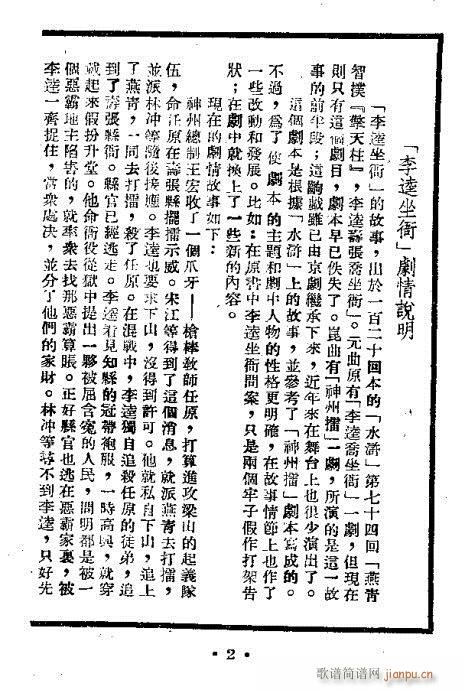 「李逵坐衙」劇情說明
「李逵坐衙」的故事，出於一百二十回本的「水滸」第七十四回「燕青
智撲『擎天柱』，李逵壽張喬坐衙」。元曲原有「李逵喬坐衙」一劇，但現在
則只有這個劇目，劇本早已佚失了。崑曲有「神州擂」一劇，所演的是這一故
事的前半段；這齣戲雖已由京劇繼承下來，近年來在舞台上也很少演出了。
這個劇本是根據「水滸」上的故事，並參考了「神州擂」劇本寫成的。
不過，為了使劇本的主題和劇中人物的性格更明確，在故事情節上也作了
一些改動和發展。比如：在原書中李逵坐衙問案，只是兩個牢子假作打架告
狀；在劇中就換上了一些新的內容。
現在的劇情故事如下：
神州總制王宏收了一個爪牙──槍棒敎師任原，打算進攻梁山的起義隊
伍，命任原在壽張縣擺擂示威。宋江等得到了這個消息，就派燕青去打擂，
並派林冲等隨後接應。李逵也要求下山，沒得到許可。他就私自下山，追上
了燕青，一同去打擂，殺了任原。在混戰中，李逵獨自追殺任原的徒弟，追
到了壽張縣衙。縣官已經逃走。李逵看見知縣的冠帶袍服，一時高興，就穿
戴起來假扮升堂。他命衙役從獄中提出一夥被屈含寃的人民，問明都是被一
個惡霸地主陷害的，就率衆去找那惡霸算賬。正好縣官也逃在惡霸家裏，被
李逵一齊捉住，當衆處决，並分了他們的家財。林冲等尋不到李逵，只好先
• 2 •
歌谱简谱网
jianpu.cn